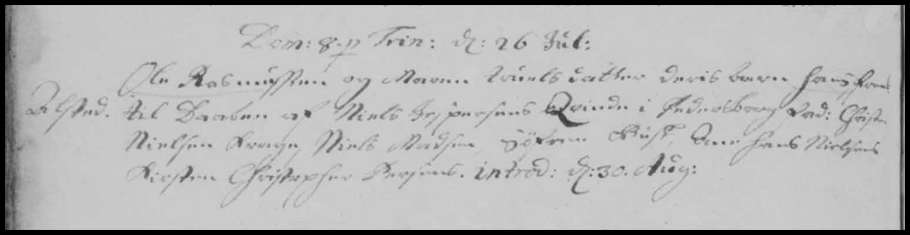 Dom: 8. p Trin: d: 26 Jul:
Ole Rasmussen og Maren Truels datter deris barn Hans, frem
Alsted. til Daaben af Niels Jespersens Qvinde i Pedersborg Fad: Christen
Nielsen Krage, Niels Madsen, Søfren Bust, Ane Hans Nielsens
Kirsten Christopher Iversens. introd: d: 30. Aug: